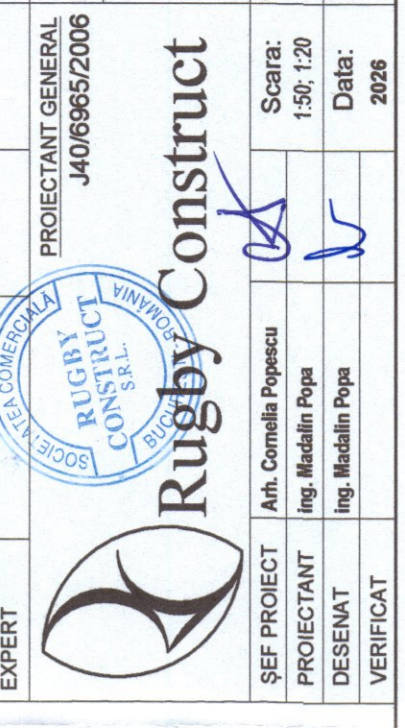 EXPERT
PROIECTANT GENERAL
J40/6965/2006
SOCIETATEA COMERCIALĂ
RUGBY
CONSTRUCT
S.R.L.
ROMÂNIA
Rugby Construct
ȘEF PROIECT Arh. Cornelia Popescu Scara:
PROIECTANT ing. Madalin Popa 1:50; 1:20
DESENAT ing. Madalin Popa Data:
VERIFICAT 2026